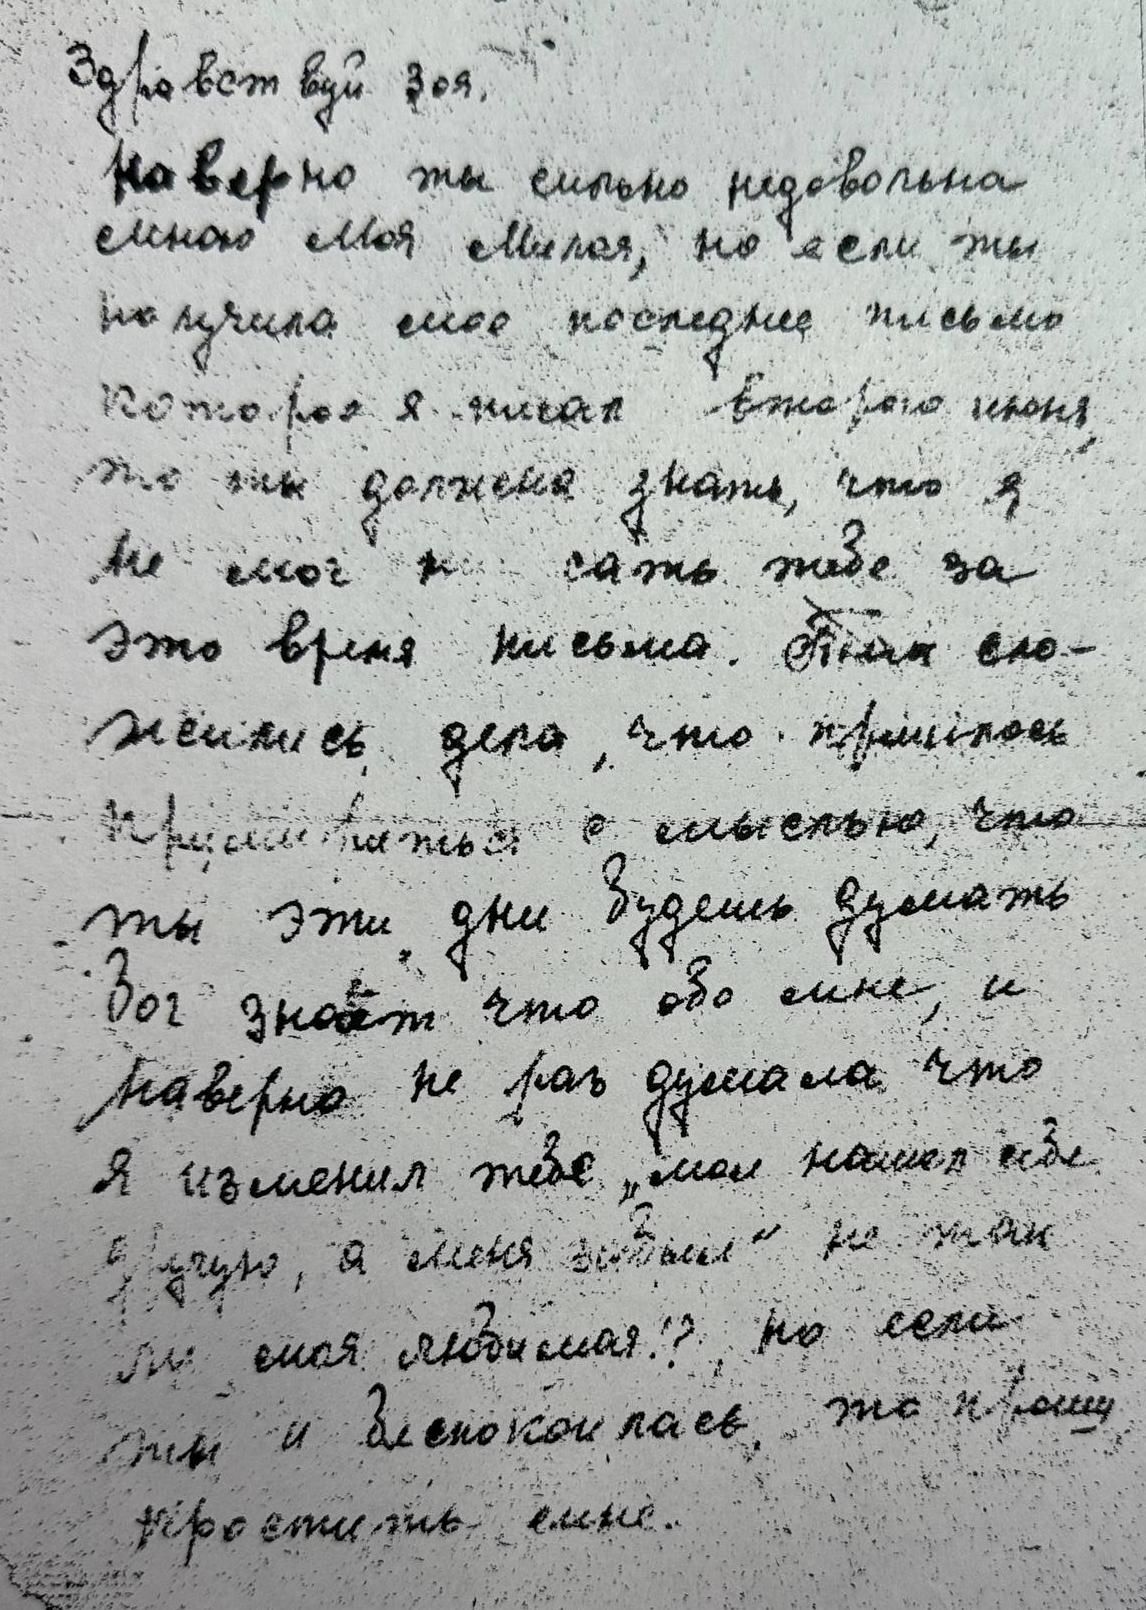 Здравствуй Зоя.
Наверно ты сильно недовольна
мною Моя Милая, но если ты
получила мое последнее письмо
которое я писал второго июня,
то ты должена знать, что я
не мог пи сать тебе за
это время письма. Так сло-
жились дела, что пришлось
примириться с мыслью, что
ты эти дни будешь думать
Бог знает что обо мне, и
наверно не раз думала что
я изменил тебе „мол нашел себе
другую, а меня забыл“ не так
ли моя любимая!?, но если
ты и беспокоилась, то прошу
простить мне.